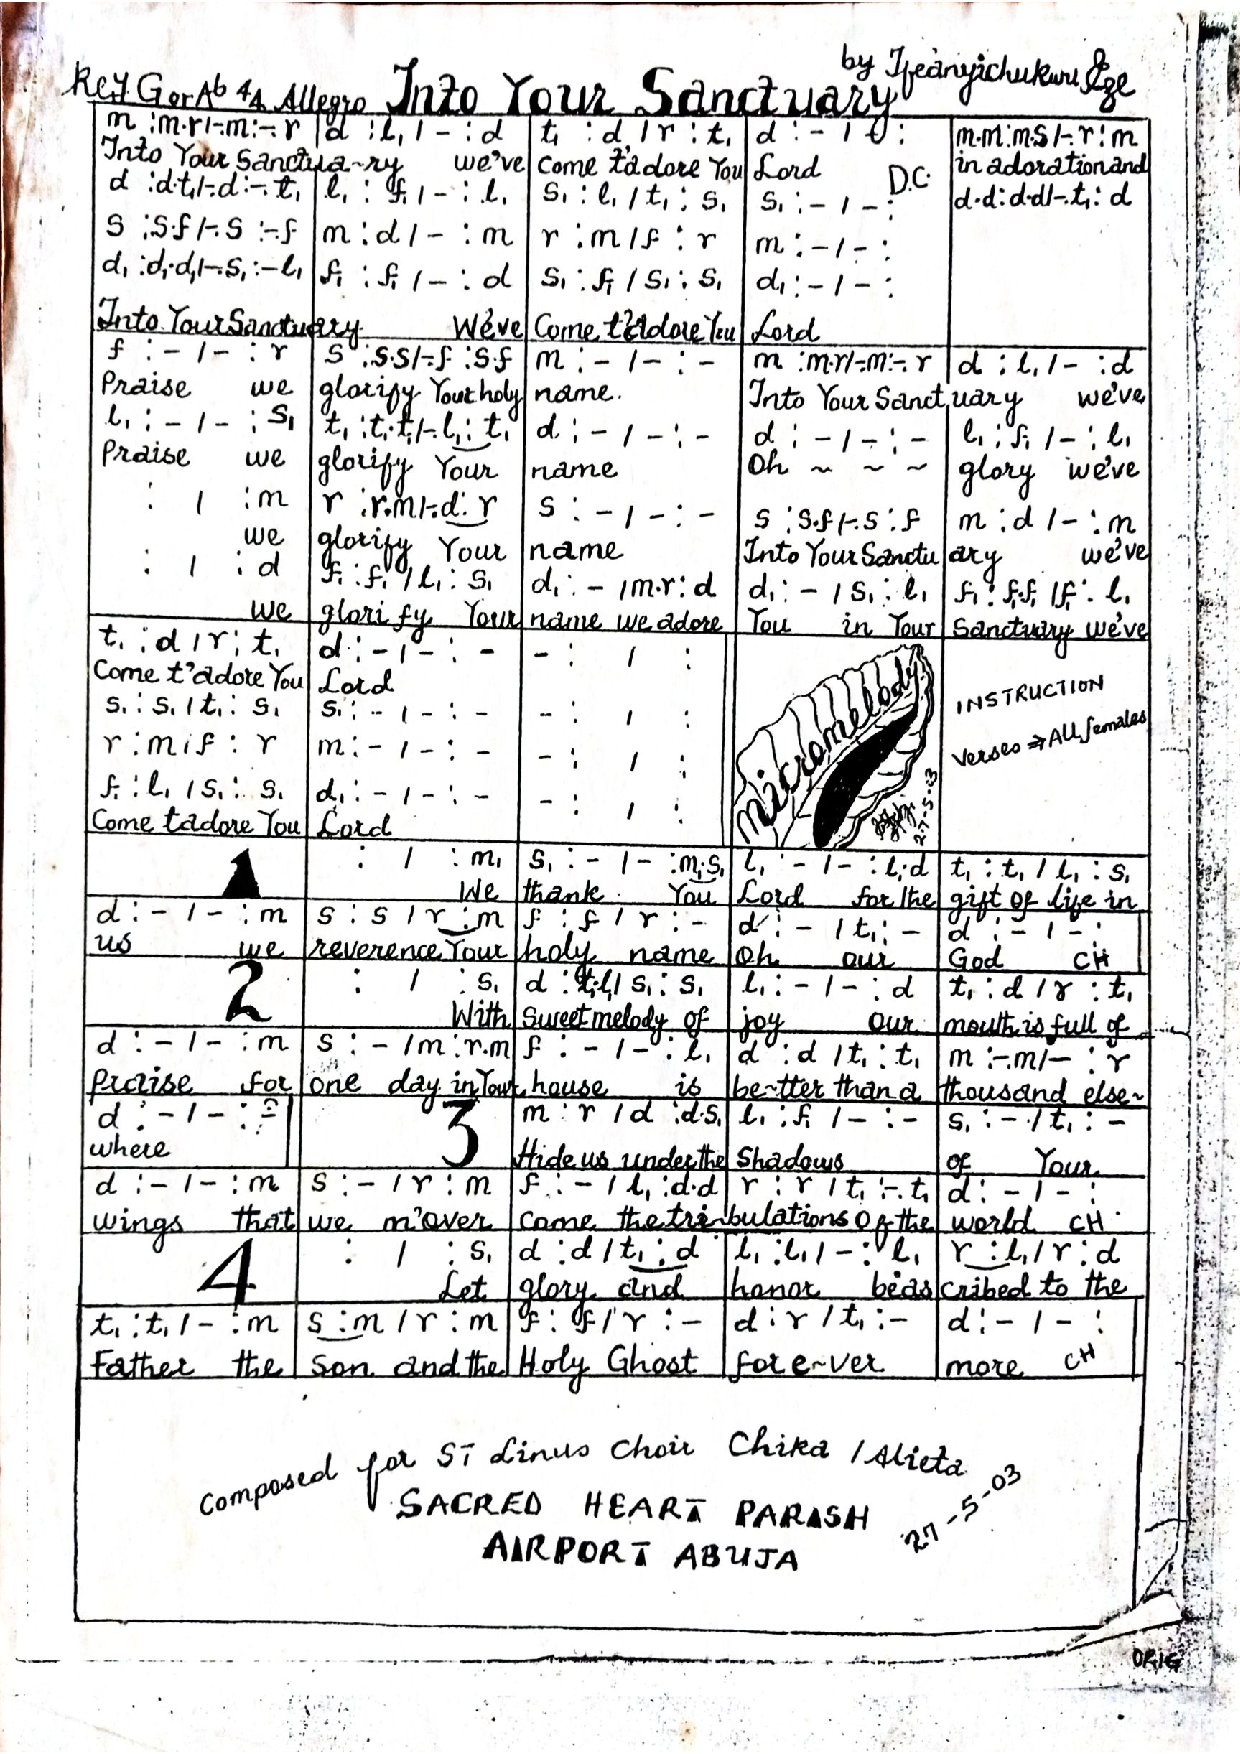 Key G or Ab 4/4 Allegro Into Your Sanctuary by Ifeanyichukwu Eze
m :m.r/-.m:-. r | d :l₁ / - : d | t₁ : d / r : t₁ | d : - / t : | m.m:m.s/-. r:m
Into Your Sanctua~ry we've | Come t'adore You | Lord D.C. | in adoration and
d :d.t₁/-.d:-. t₁ | l₁ : f₁ / - : l₁ | s₁ : l₁ / t₁ : s₁ | s₁ : - / - : | d.d:d.d/-. t₁: d
s :s.f/-.s :-.f | m : d / - : m | r : m / f : r | m : - / - :
d₁ :d₁.d₁/-.s₁:-.l₁ | f₁ : f₁ / - : d | s₁ : f₁ / s₁ : s₁ | d₁ : - / - :
Into Your Sanctuary We've | Come t'adore You | Lord
f : - / - : r | s :s.s/-.f :s.f | m : - / - : - | m :m.r/-.m:-. r | d : l₁ / - : d
Praise we | glorify Your holy | name. | Into Your Sanctuary we've
l₁ : - / - : s₁ | t₁ :t₁.t₁/-.l₁ : t₁ | d : - / - : - | d : - / - : - | l₁ : f₁ / - : l₁
Praise we | glorify Your | name | Oh ~ ~ ~ | glory we've
: / :m | r :r.m/-.d: r | s : - / - : - | s :s.f/-.s : f | m : d / - : m
we | glorify Your | name | Into Your Sanctuary we've
: / : d | f₁ : f₁ / l₁ : s₁ | d₁ : - / m.r : d | d₁ : - / s₁ : l₁ | f₁ : f₁.f₁ / f₁ : l₁
we | glorify Your | name we adore | You in Your | Sanctuary we've
t₁ : d / r : t₁ | d : - / - : - | - : / :
Come t'adore You | Lord
s₁ : s₁ / t₁ : s₁ | s₁ : - / - : - | - : / :
r : m / f : r | m : - / - : - | - : / :
f₁ : l₁ / s₁ : s₁ | d₁ : - / - : - | - : / :
Come t'adore You | Lord
micromelody
27-5-03
INSTRUCTION
Verses ⇒ All females
1 | : / : m₁ | s₁ : - / - :m₁.s₁ | l₁ : - / - : l₁.d | t₁ : t₁ / l₁ : s₁
We | thank You | Lord for the | gift of life in
d : - / - : m | s : s / r : m | f : f / r : - | d : - / t₁ : - | d : - / - :
us we | reverence Your | holy name | Oh our | God CH
2 | : / : s₁ | d : t₁.l₁ / s₁ : s₁ | l₁ : - / - : d | t₁ : d / r : t₁
With | Sweet melody of | joy our | mouth is full of
d : - / - : m | s : - / m : r.m | f : - / - : l₁ | d : d / t₁ : t₁ | m :-.m/- : r
Praise for | one day in Your | house is | be~tter than a | thousand else~
d : - / - : | 3 | m : r / d :d.s₁ | l₁ : f₁ / - : - | s₁ : - / t₁ : -
where | Hide us under the | Shadows | of Your
d : - / - : m | s : - / r : m | f : - / l₁ :d.d | r : r / t₁ :-.t₁ | d : - / - :
wings that | we m'over | come the tribulations of the | world CH
4 | : / : s₁ | d : d / t₁ : d | l₁ : l₁ / - : l₁ | r : l₁ / r : d
Let | glory and | honor be as | cribed to the
t₁ : t₁ / - : m | s : m / r : m | f : f / r : - | d : r / t₁ : - | d : - / - :
Father the | Son and the | Holy Ghost | for e~ver | more CH
Composed for ST Linus Choir Chika / Alieta
SACRED HEART PARISH
AIRPORT ABUJA
27-5-03
ORIG